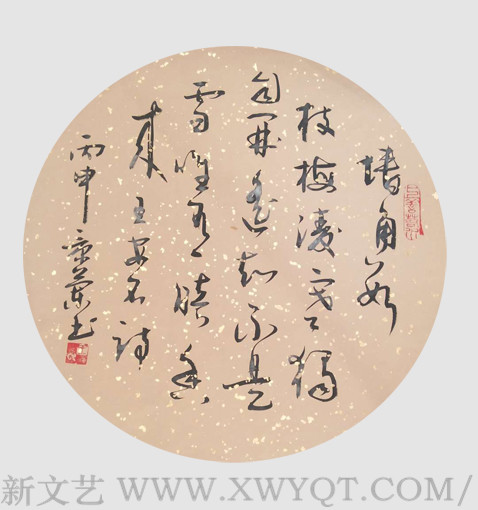 墙角数
枝梅凌寒獨
自開遥知不是
雪唯有暗香
来王安石诗
丙申 兰书
新文艺 WWW.XWYQT.COM/